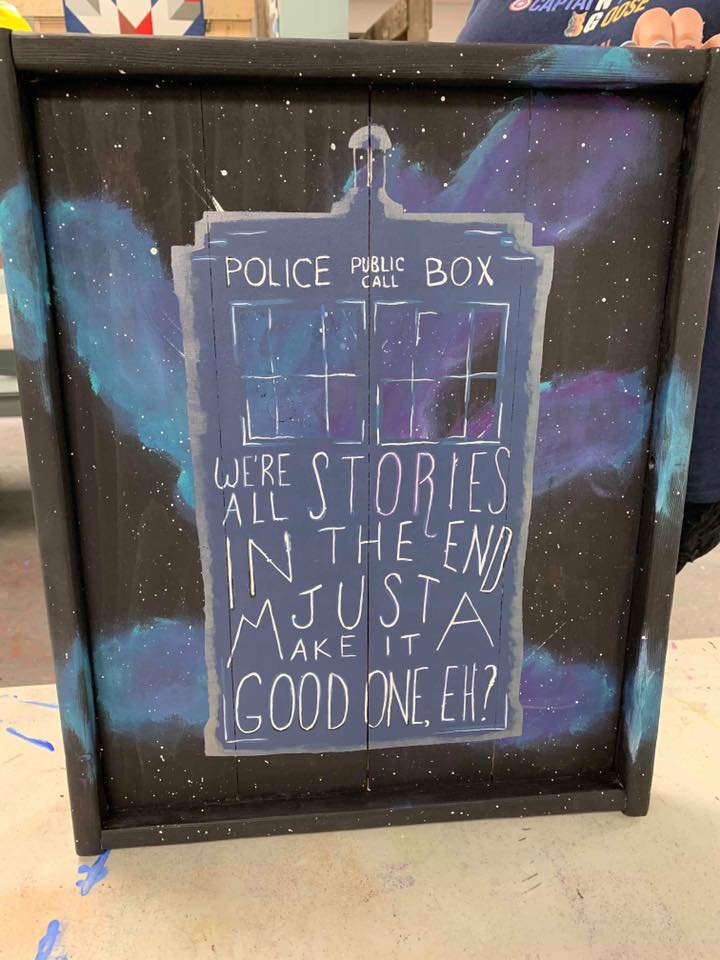 CAPTAIN
& GOOSE
POLICE PUBLIC CALL BOX
WE'RE ALL STORIES
IN THE END
JUST
MAKE IT A
GOOD ONE, EH?